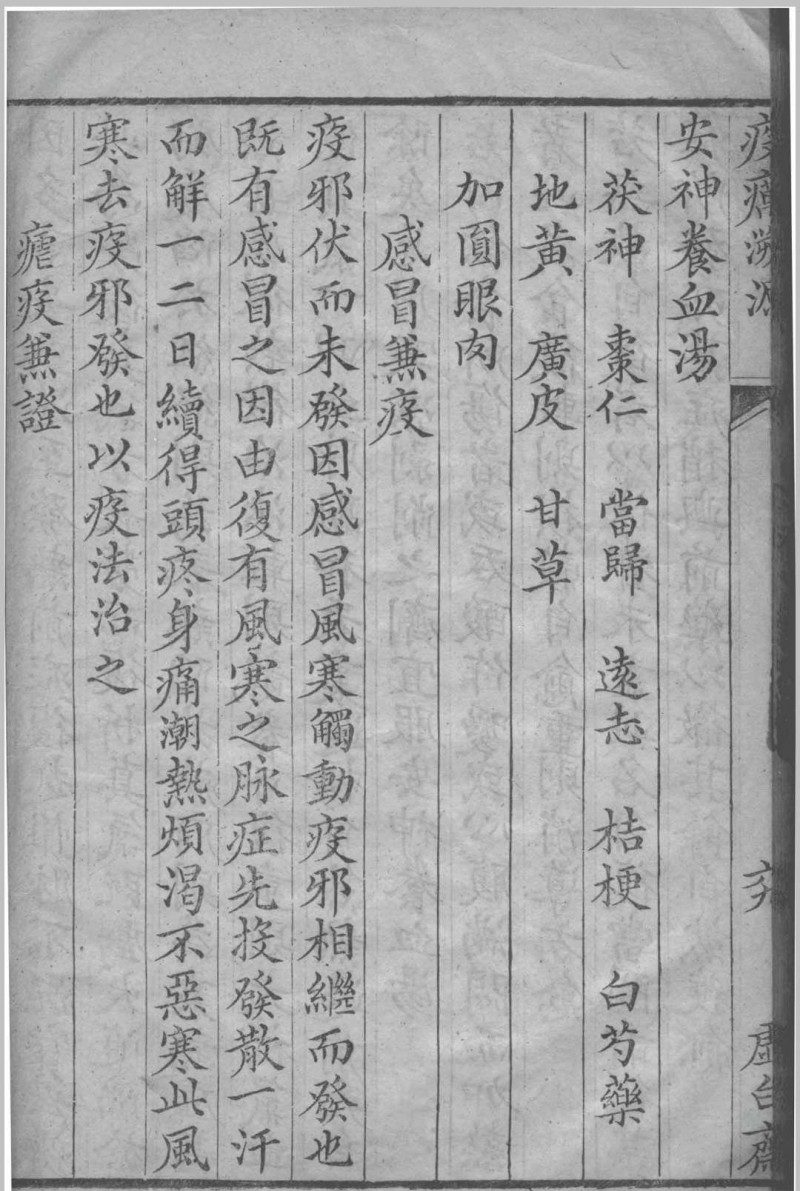 疫痢溯源
虛白齋
安神養血湯
茯神 棗仁 當歸 遠志 桔梗 白芍藥
地黃 廣皮 甘草
加圓眼肉
感冒兼疫
疫邪伏而未發因感冒風寒觸動疫邪相繼而發也
既有感冒之因由復有風寒之脉症先投發散一汗
而解一二日續得頭疼身痛潮熱煩渴不惡寒此風
寒去疫邪發也以疫法治之
瘧疫兼證